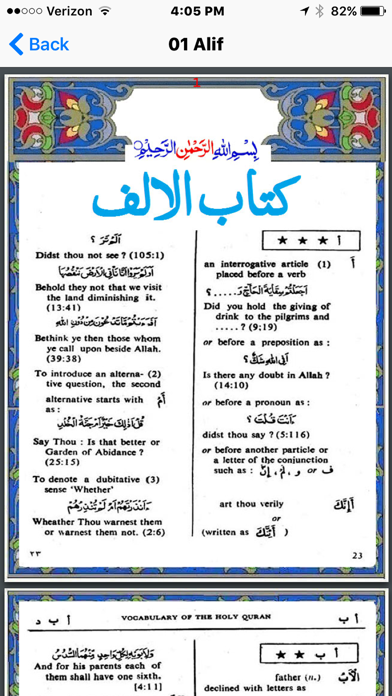 Verizon 4:05 PM 82%
Back
01 Alif
1
بِسْمِ اللهِ الرَّحْمٰنِ الرَّحِيْمِ
كتاب الالف
أ ★ ★ ★
an interrogative article (1) أ
placed before a verb
اَجَعَلْتُمْ سِقَايَةَ الْحَآجِّ وَ.....؟
Did you hold the giving of
drink to the pilgrims and
..... ? (9:19)
or before a preposition as :
اَفِى اللهِ شَكٌّ ؟
Is there any doubt in Allah ?
(14:10)
or before a pronoun as :
ءَاَنْتَ قُلْتَ ؟
didst thou say ? (5:116)
or before another particle or
a letter of the conjunction
such as : اِنَّ ,لَمْ ,و or ف
art thou verily أَإِنَّكَ
or
(written as أَئِنَّكَ )
اَلَمْ تَرَ ؟
Didst thou not see ? (105:1)
اَوَلَمْ يَرَوْا اَنَّا نَاْتِى الْاَرْضَ نَنْقُصُهَا
Behold they not that we visit
the land diminishing it.
(13:41)
اَفَرَءَيْتُمْ مَّا تَدْعُوْنَ مِنْ دُوْنِ اللهِ
Bethink ye then those whom
ye call upon beside Allah.
(39:38)
To introduce an alterna- (2)
tive question, the second
alternative starts with أَمْ
as :
قُلْ اَذٰلِكَ خَيْرٌ اَمْ جَنَّةُ الْخُلْدِ
Say Thou : Is that better or
Garden of Abidance ?
(25:15)
To denote a dubitative (3)
sense 'Whether'
ءَاَنْذَرْتَهُمْ اَمْ لَمْ تُنْذِرْهُمْ
Wheather Thou warnest them
or warnest them not. (2:6)
٢٣ 23
أ ب د VOCABULARY OF THE HOLY QURAN أ ب
أ ب ★ ★
father (n.) اَلْأَبُ
declined with letters as
وَلِاَبَوَيْهِ لِكُلِّ وَاحِدٍ مِّنْهُمَا السُّدُسُ
And for his parents each of
them shall have one sixth.
[4:11]